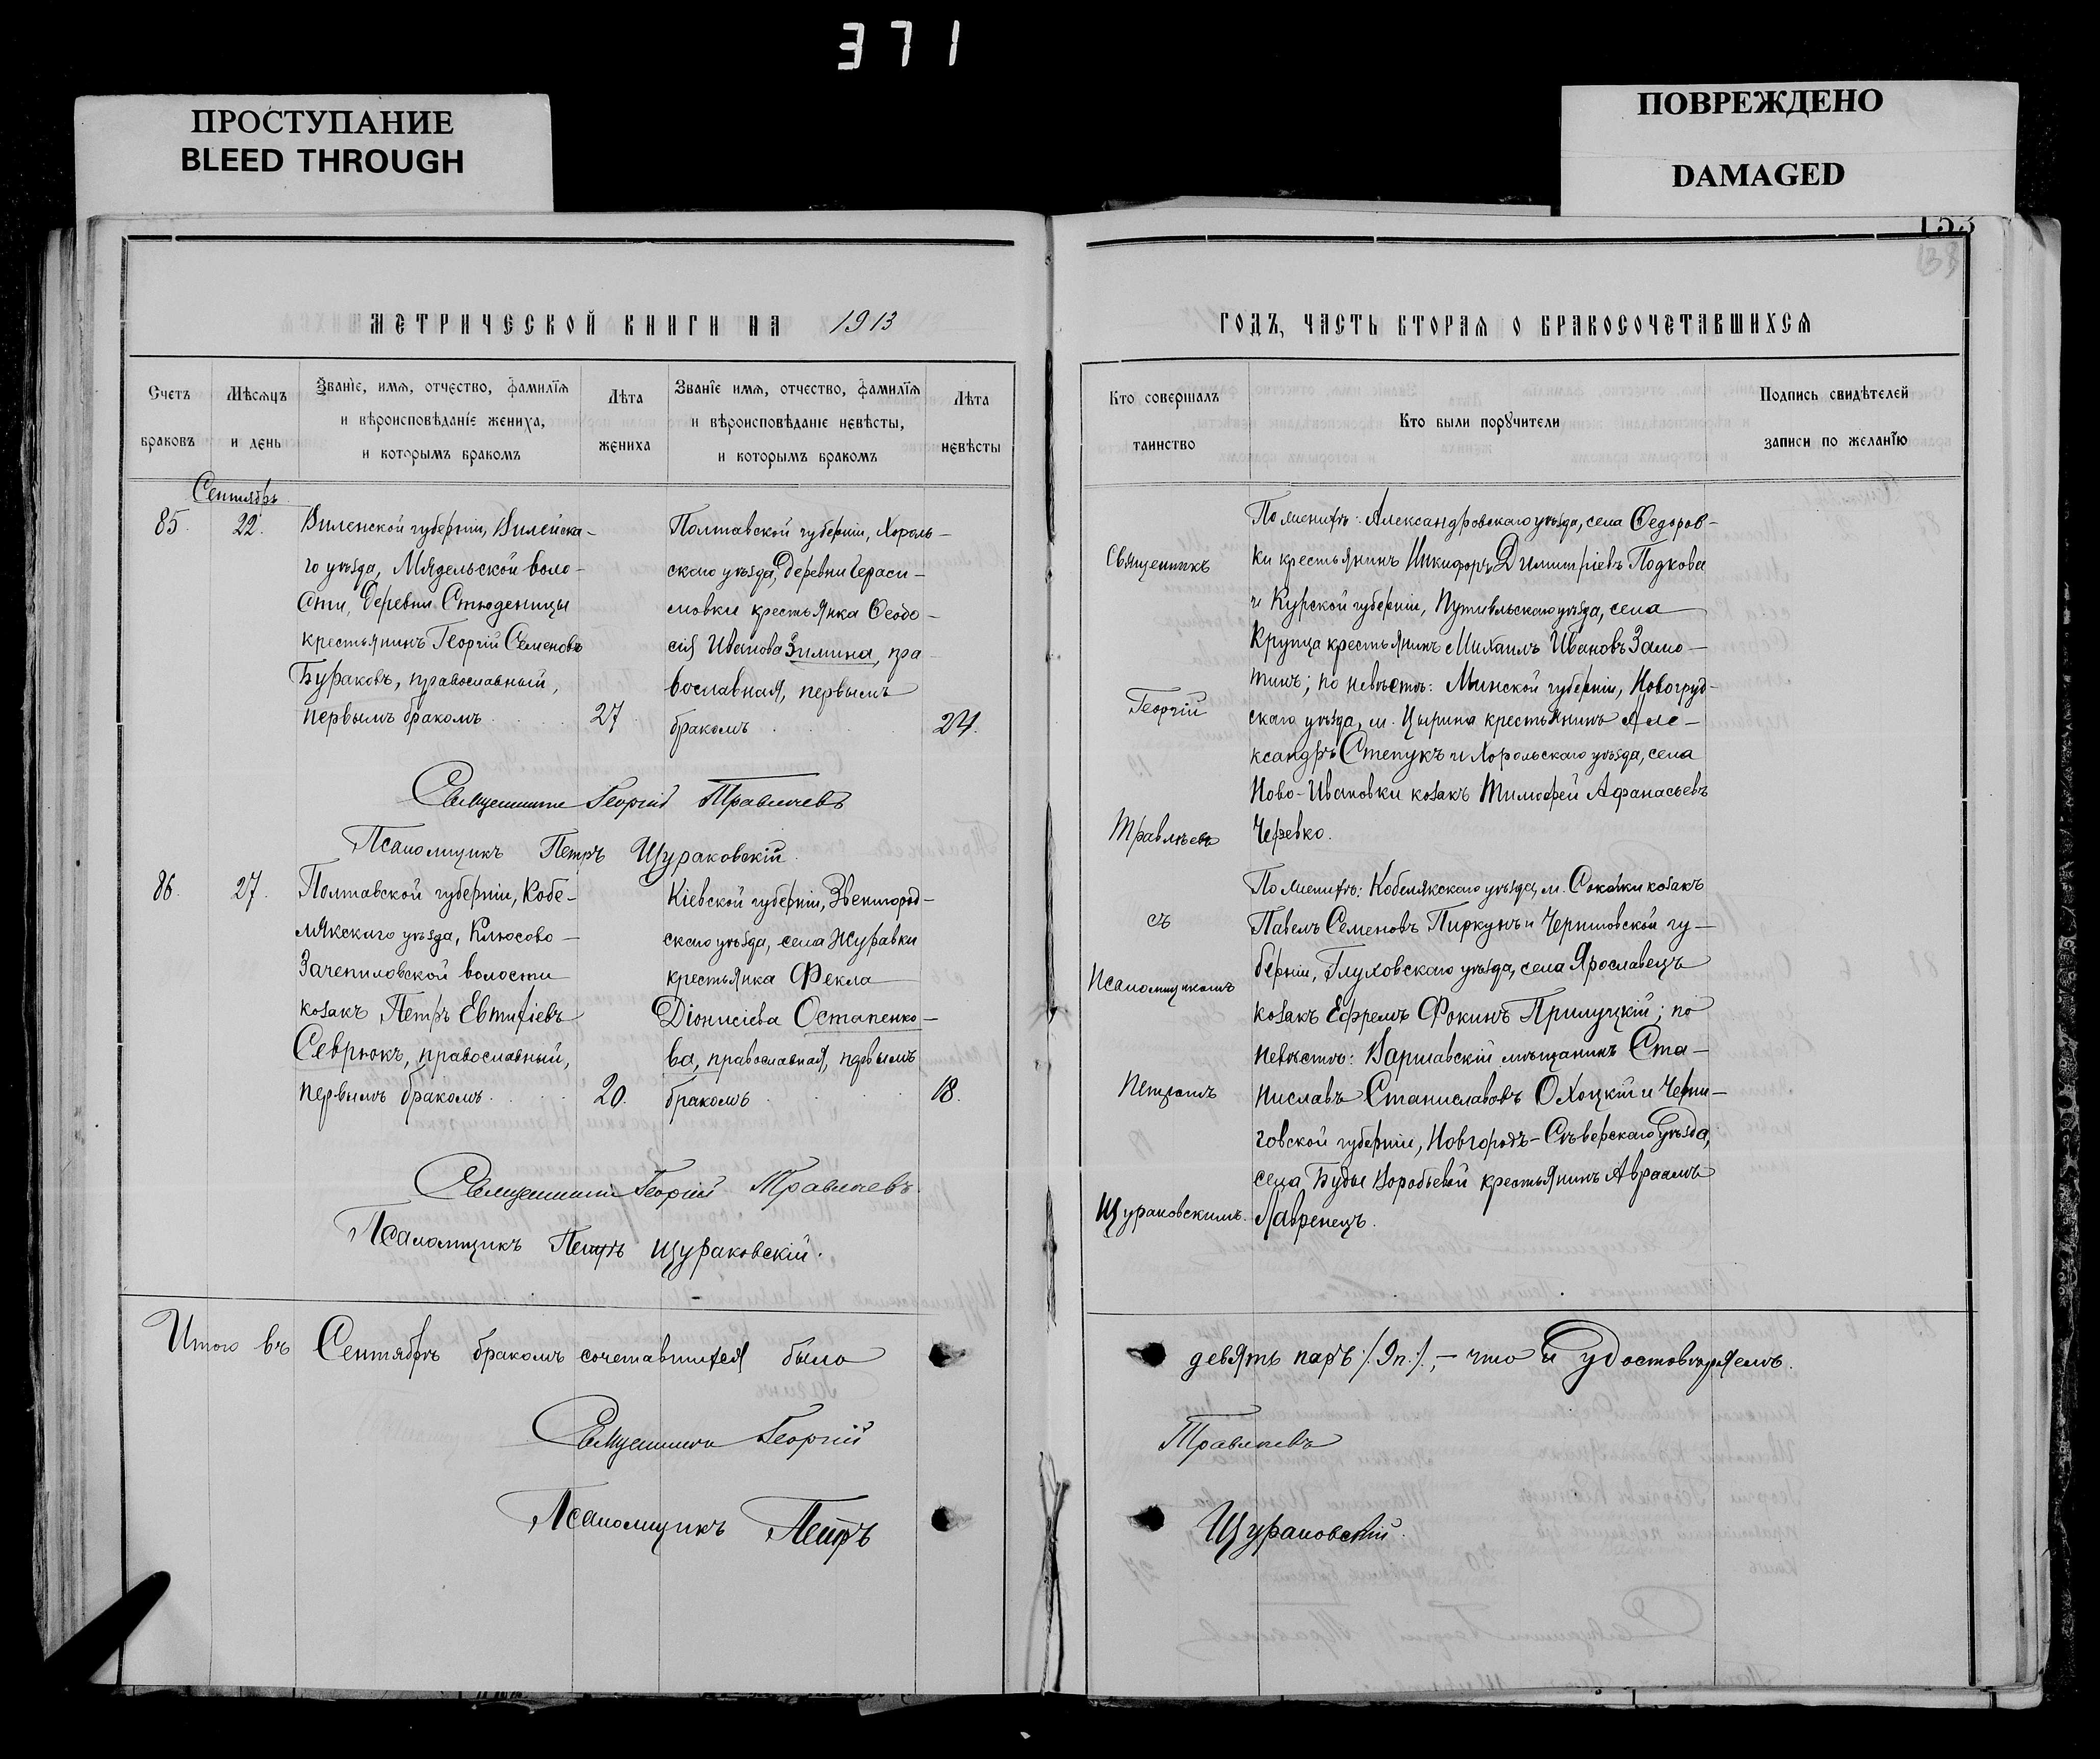 371
ПРОСТУПАНИЕ
BLEED THROUGH
ПОВРЕЖДЕНО
DAMAGED
153
МЕТРИЧЕСКОЙ КНИГИ НА 1913
Счетъ браковъ
Мѣсяцъ и день
Званїе, имя, отчество, фамилїя
и вѣроисповѣданїе жениха,
и которымъ бракомъ
Лѣта жениха
Званїе имя, отчество, фамилїя
и вѣроисповѣданїе невѣсты,
и которымъ бракомъ
Лѣта невѣсты
Сентябрь
85. 22.
Виленской губерніи, Вилейска-
го уѣзда, Мядельской воло-
сти, деревни Стюденицы
крестьянинъ Георгій Семеновъ
Бураковъ, православный,
первымъ бракомъ 27
Полтавской губерніи, Хороль-
скаго уѣзда, деревни Гераси-
мовки крестьянка Ѳеодо-
сія Иванова Зимина, пра-
вославная, первымъ
бракомъ 24.
Священникъ Георгій Травлѣевъ
Псаломщикъ Петръ Щураковскій.
86. 27.
Полтавской губерніи, Кобе-
лякскаго уѣзда, Клюсово-
Зачепиловской волости
козакъ Петръ Евтихіевъ
Севрюкъ, православный,
первымъ бракомъ 20.
Кіевской губерніи, Звенигород-
скаго уѣзда, села Журавки
крестьянка Фекла
Діонисіева Остапенко-
ва, православная, первымъ
бракомъ 18.
Священникъ Георгій Травлѣевъ.
Псаломщикъ Петръ Щураковскій.
Итого въ Сентябрѣ бракомъ сочетавшихся было
Священникъ Георгій
Псаломщикъ Петръ
ГОДЪ, ЧАСТЬ ВТОРАЯ О БРАКОСОЧЕТАВШИХСЯ
Кто совершалъ таинство
Кто были поручители
Подпись свидѣтелей
записи по желанїю
Священникъ
Георгій
Травлѣевъ
съ
Псаломщикомъ
Петромъ
Щураковскимъ.
По женихѣ: Александровскаго уѣзда, села Ѳедоров-
ки крестьянинъ Никифоръ Димитріевъ Подкова
и Курской губерніи, Путивльскаго уѣзда, села
Крупца крестьянинъ Михаилъ Ивановъ Замо-
тинъ; по невѣстѣ: Минской губерніи, Новогруд-
скаго уѣзда, м. Цырина крестьянинъ Але-
ксандръ Степукъ и Хорольскаго уѣзда, села
Ново-Ивановки козакъ Тимофей Афанасьевъ
Черевко.
По женихѣ: Кобелякскаго уѣзда, м. Соколки козакъ
Павелъ Семеновъ Пиркунъ и Черниговской гу-
берніи, Глуховскаго уѣзда, села Ярославецъ
козакъ Ефремъ Фокинъ Прилуцкій; по
невѣстѣ: Варшавскій мѣщанинъ Ста-
ниславъ Станиславовъ Охоцкій и Черни-
говской губерніи, Новгородъ-Сѣверскаго уѣзда,
села Буды Воробьевой крестьянинъ Авраамъ
Лавренецъ.
девять паръ /9п./,- что и удостовѣряемъ.
Травлѣевъ
Щураковскій.